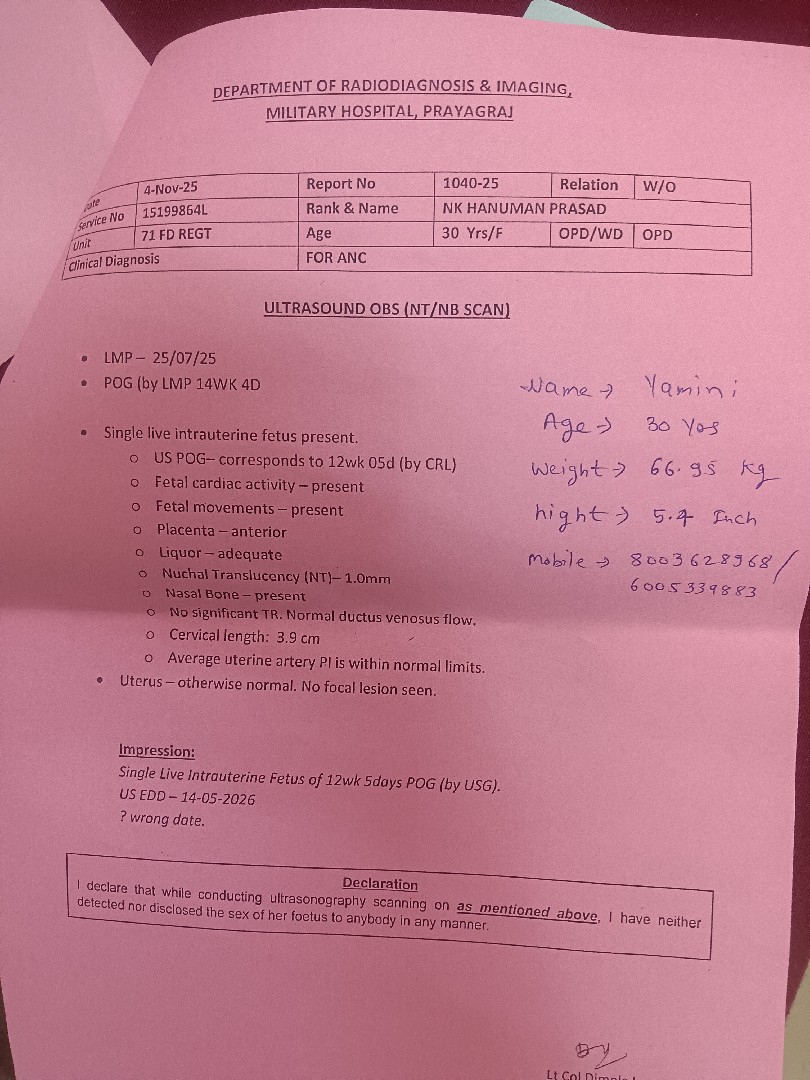 DEPARTMENT OF RADIODIAGNOSIS & IMAGING,
MILITARY HOSPITAL, PRAYAGRAJ
4-Nov-25 Report No 1040-25 Relation W/O
Service No 15199864L Rank & Name NK HANUMAN PRASAD
Unit 71 FD REGT Age 30 Yrs/F OPD/WD OPD
Clinical Diagnosis FOR ANC
ULTRASOUND OBS (NT/NB SCAN)
• LMP – 25/07/25
• POG (by LMP 14WK 4D
• Single live intrauterine fetus present.
o US POG– corresponds to 12wk 05d (by CRL)
o Fetal cardiac activity – present
o Fetal movements – present
o Placenta – anterior
o Liquor – adequate
o Nuchal Translucency (NT)– 1.0mm
o Nasal Bone – present
o No significant TR. Normal ductus venosus flow.
o Cervical length: 3.9 cm
o Average uterine artery PI is within normal limits.
• Uterus – otherwise normal. No focal lesion seen.
Name → Yamini
Age → 30 Yos
Weight → 66.95 kg
hight → 5.4 Inch
Mobile → 8003628968/
6005339883
Impression:
Single Live Intrauterine Fetus of 12wk 5days POG (by USG).
US EDD – 14-05-2026
? wrong date.
Declaration
I declare that while conducting ultrasonography scanning on as mentioned above, I have neither
detected nor disclosed the sex of her foetus to anybody in any manner.
Lt Col